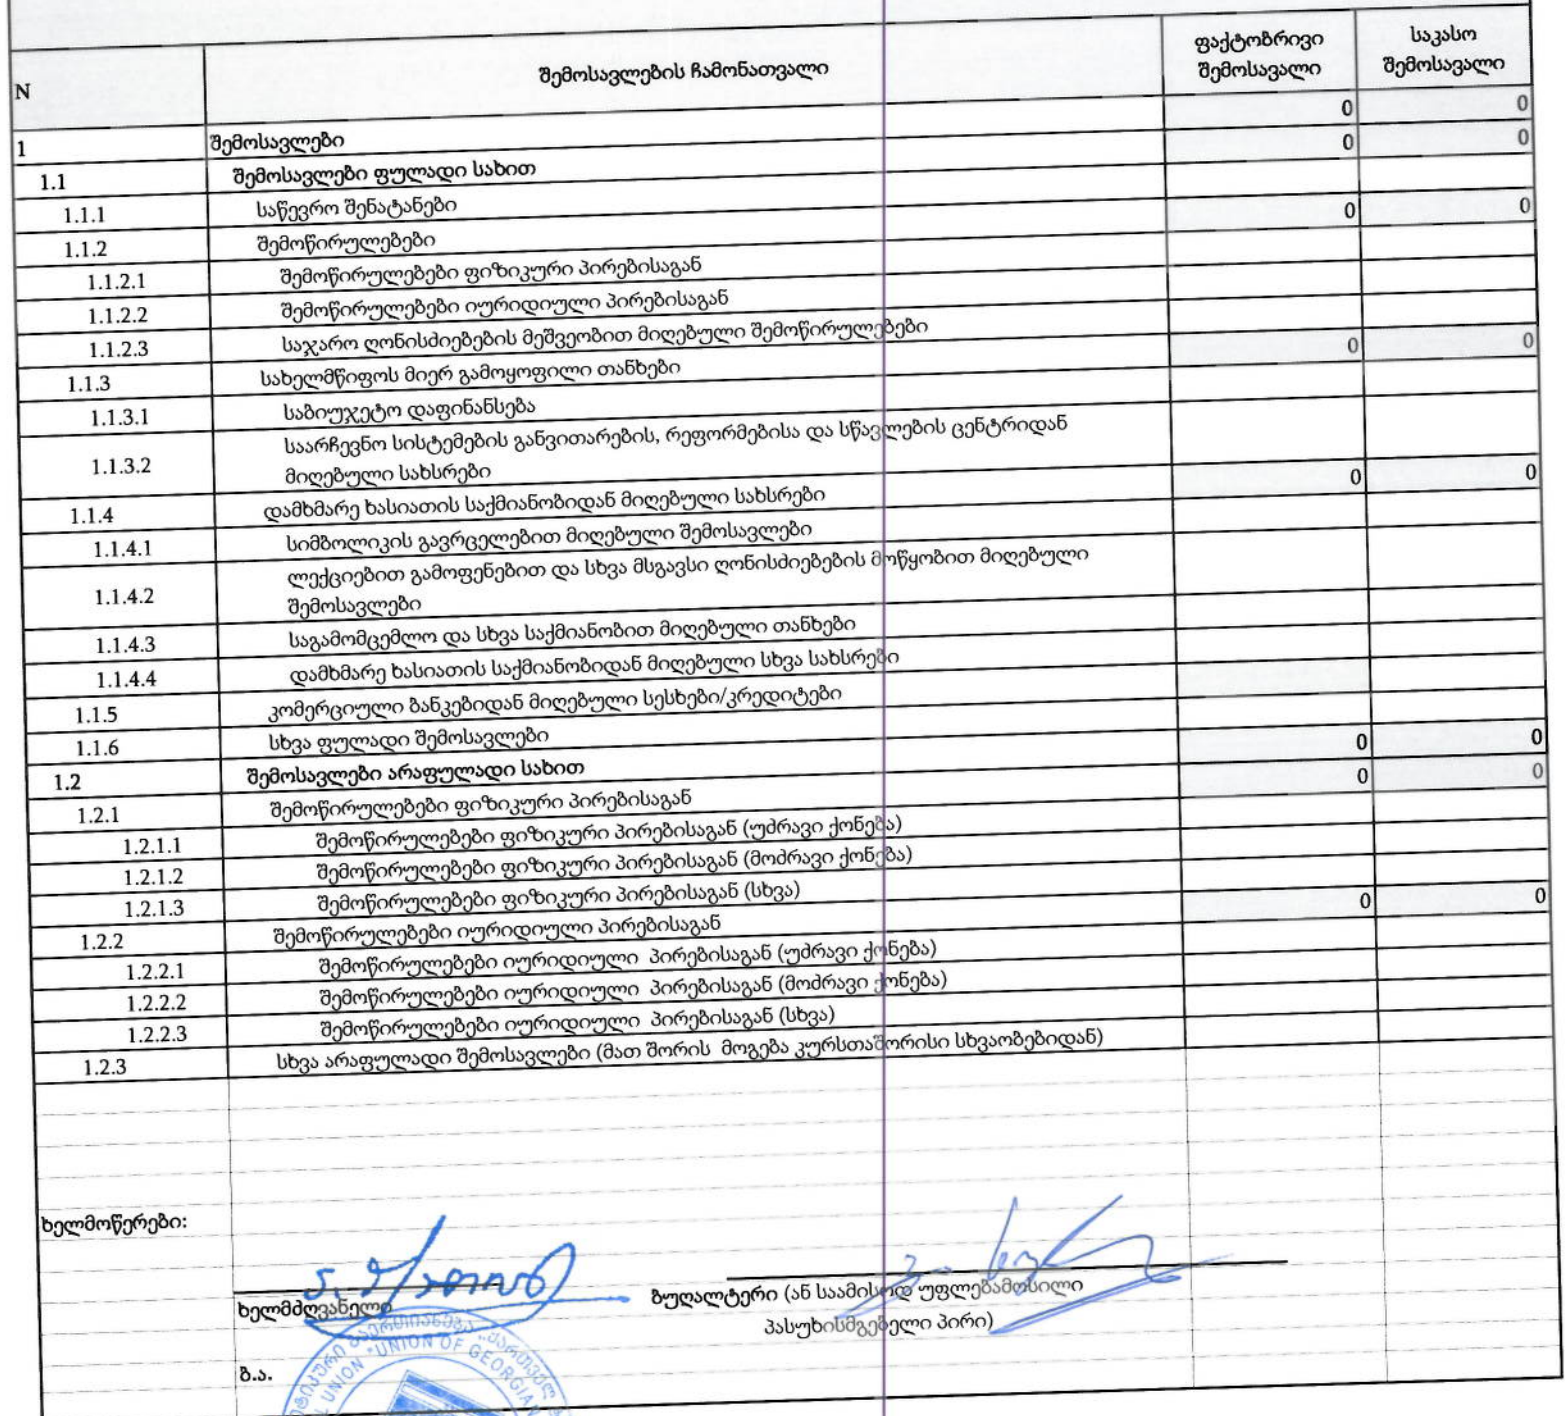 N შემოსავლების ჩამონათვალი ფაქტობრივი შემოსავალი საკასო შემოსავალი
1 შემოსავლები 0 0
1.1 შემოსავლები ფულადი სახით 0 0
1.1.1 საწევრო შენატანები
1.1.2 შემოწირულებები 0 0
1.1.2.1 შემოწირულებები ფიზიკური პირებისაგან
1.1.2.2 შემოწირულებები იურიდიული პირებისაგან
1.1.2.3 საჯარო ღონისძიებების მეშვეობით მიღებული შემოწირულებები
1.1.3 სახელმწიფოს მიერ გამოყოფილი თანხები 0 0
1.1.3.1 საბიუჯეტო დაფინანსება
1.1.3.2 საარჩევნო სისტემების განვითარების, რეფორმებისა და სწავლების ცენტრიდან
მიღებული სახსრები
1.1.4 დამხმარე ხასიათის საქმიანობიდან მიღებული სახსრები 0 0
1.1.4.1 სიმბოლიკის გავრცელებით მიღებული შემოსავლები
1.1.4.2 ლექციებით გამოფენებით და სხვა მსგავსი ღონისძიებების მოწყობით მიღებული
შემოსავლები
1.1.4.3 საგამომცემლო და სხვა საქმიანობით მიღებული თანხები
1.1.4.4 დამხმარე ხასიათის საქმიანობიდან მიღებული სხვა სახსრები
1.1.5 კომერციული ბანკებიდან მიღებული სესხები/კრედიტები
1.1.6 სხვა ფულადი შემოსავლები
1.2 შემოსავლები არაფულადი სახით 0 0
1.2.1 შემოწირულებები ფიზიკური პირებისაგან 0 0
1.2.1.1 შემოწირულებები ფიზიკური პირებისაგან (უძრავი ქონება)
1.2.1.2 შემოწირულებები ფიზიკური პირებისაგან (მოძრავი ქონება)
1.2.1.3 შემოწირულებები ფიზიკური პირებისაგან (სხვა)
1.2.2 შემოწირულებები იურიდიული პირებისაგან 0 0
1.2.2.1 შემოწირულებები იურიდიული პირებისაგან (უძრავი ქონება)
1.2.2.2 შემოწირულებები იურიდიული პირებისაგან (მოძრავი ქონება)
1.2.2.3 შემოწირულებები იურიდიული პირებისაგან (სხვა)
1.2.3 სხვა არაფულადი შემოსავლები (მათ შორის მოგება კურსთაშორისი სხვაობებიდან)
ხელმოწერები:
ხელმძღვანელი
ბუღალტერი (ან საამისოდ უფლებამოსილი
პასუხისმგებელი პირი)
ბ.ა.
UNION "UNION OF GEORGIAN